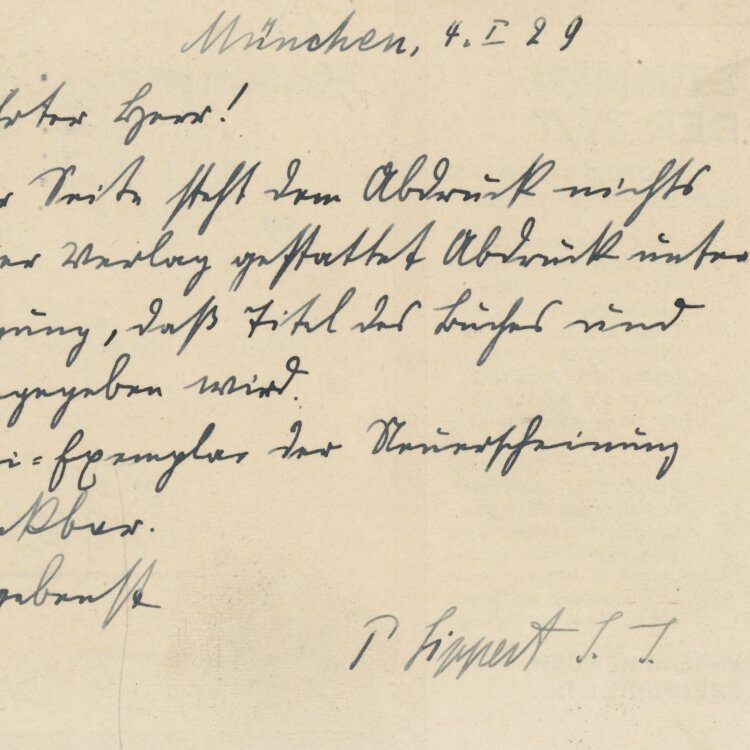 München, 4. I 29
hrter Herr!
r Seite steht dem Abdruck nichts
er Verlag gestattet Abdruck unter
gung, daß Titel des Buches und
ngegeben wird.
i=Exemplar der Neuerscheinung
nkbar.
gebenst
P Lippert S. J.